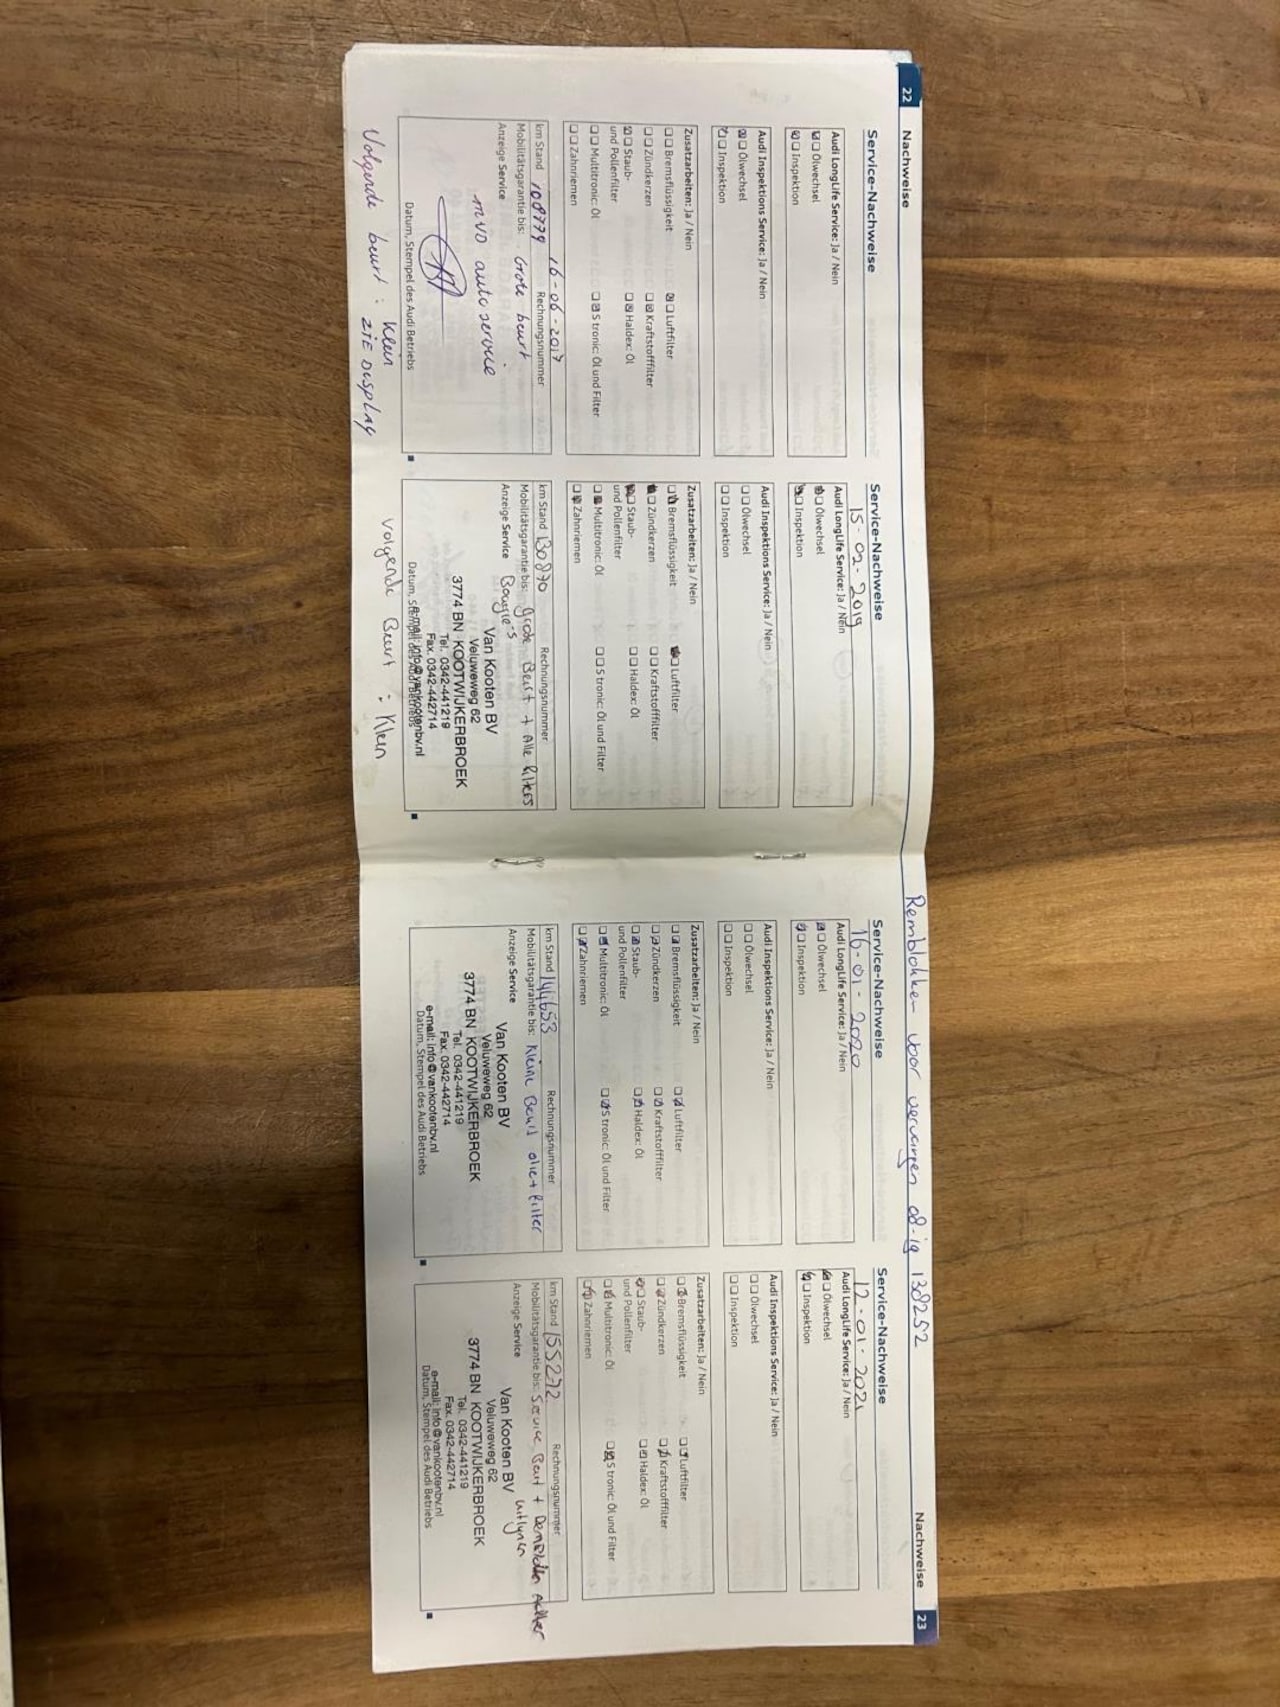 22 Nachweise
Service-Nachweise
Audi LongLife Service: Ja / Nein
Ölwechsel
Inspektion
Audi Inspektions Service: Ja / Nein
Ölwechsel
Inspektion
Zusatzarbeiten: Ja / Nein
Bremsflüssigkeit Luftfilter
Zündkerzen Kraftstofffilter
Staub- Haldex: Öl
und Pollenfilter
Multitronic: Öl S tronic: Öl und Filter
Zahnriemen
16-06-2017
km Stand 108779 Rechnungsnummer
Mobilitätsgarantie bis: Grote beurt
Anzeige Service
MVD autoservice
Datum, Stempel des Audi Betriebs
Volgende beurt : Klein
ZIE DISPLAY
Service-Nachweise
15-02-2019
Audi LongLife Service: Ja / Nein
Ölwechsel
Inspektion
Audi Inspektions Service: Ja / Nein
Ölwechsel
Inspektion
Zusatzarbeiten: Ja / Nein
Bremsflüssigkeit Luftfilter
Zündkerzen Kraftstofffilter
Staub- Haldex: Öl
und Pollenfilter
Multitronic: Öl S tronic: Öl und Filter
Zahnriemen
km Stand 130870 Rechnungsnummer
Mobilitätsgarantie bis: grote Beurt + Alle filters
Anzeige Service Bougie's
Van Kooten BV
Veluweweg 62
3774 BN KOOTWIJKERBROEK
Tel. 0342-441219
Fax. 0342-442714
e-mail: info@vankootenbv.nl
Datum, Stempel des Audi Betriebs
volgende Beurt : Klein
Nachweise 23
Remblokken voor vervangen 08-19 138252
Service-Nachweise
16-01-2020
Audi LongLife Service: Ja / Nein
Ölwechsel
Inspektion
Audi Inspektions Service: Ja / Nein
Ölwechsel
Inspektion
Zusatzarbeiten: Ja / Nein
Bremsflüssigkeit Luftfilter
Zündkerzen Kraftstofffilter
Staub- Haldex: Öl
und Pollenfilter
Multitronic: Öl S tronic: Öl und Filter
Zahnriemen
km Stand 144653 Rechnungsnummer
Mobilitätsgarantie bis: Kleine Beurt olie + filter
Anzeige Service
Van Kooten BV
Veluweweg 62
3774 BN KOOTWIJKERBROEK
Tel. 0342-441219
Fax. 0342-442714
e-mail: info@vankootenbv.nl
Datum, Stempel des Audi Betriebs
Service-Nachweise
12-01-2021
Audi LongLife Service: Ja / Nein
Ölwechsel
Inspektion
Audi Inspektions Service: Ja / Nein
Ölwechsel
Inspektion
Zusatzarbeiten: Ja / Nein
Bremsflüssigkeit Luftfilter
Zündkerzen Kraftstofffilter
Staub- Haldex: Öl
und Pollenfilter
Multitronic: Öl S tronic: Öl und Filter
Zahnriemen
km Stand 155272 Rechnungsnummer
Mobilitätsgarantie bis: Service Beurt + Achter
Anzeige Service
Van Kooten BV
Veluweweg 62
3774 BN KOOTWIJKERBROEK
Tel. 0342-441219
Fax. 0342-442714
e-mail: info@vankootenbv.nl
Datum, Stempel des Audi Betriebs